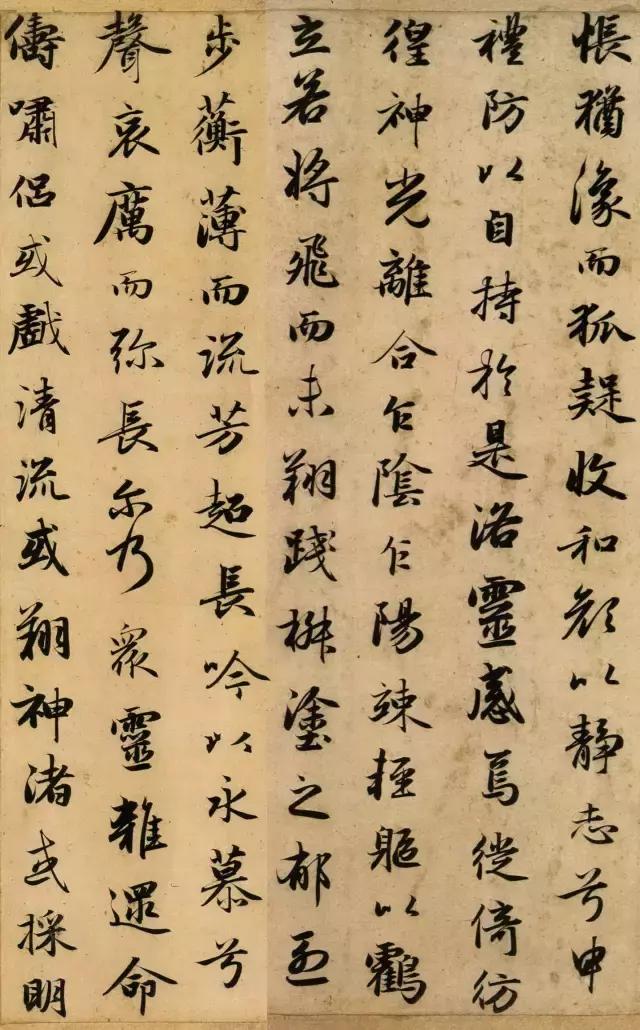 悵猶豫而狐疑收和顏以靜志兮申
禮防以自持於是洛靈感焉徙倚彷
徨神光離合乍陰乍陽竦輕軀以鶴
立若將飛而未翔踐椒塗之郁烈
步蘅薄而流芳超長吟以永慕兮
聲哀厲而弥長尔乃眾靈雜遝命
儔嘯侶或戲清流或翔神渚或採明